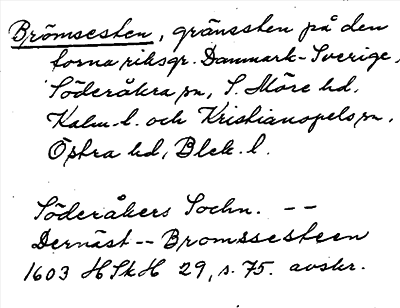 Brömsesten, gränssten på den
forna riksgr. Danmark-Sverige,
Söderåkra sn, S. Möre hd,
Kalm. l. och Kristianopels sn,
Östra hd, Blek. l.
Söderåkers Sochn. --
Dernäst -- Bromssesteen
1603 HSkH 29, s. 75. avskr.